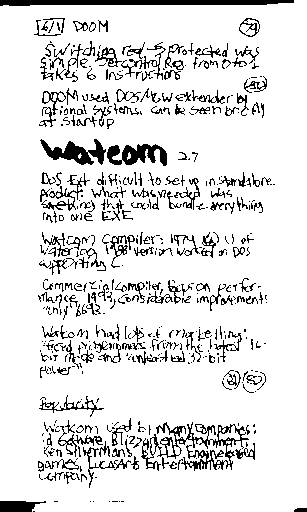 6/1 DOOM 79
Switching real-> protected was
simple. Set control Reg. from 0 to 1
takes 6 instructions
80
DOOM used DOS/4GW extender by
rational systems. can be seen briefly
at startup
Watcom 2.7
DOS Ext difficult to set up in standalone
product. What was needed was
something that could bundle everything
into one EXE
Watcom Compiler: 1974 U of
Waterloo 1988 version worked on DOS
supporting C.
Commercial compiler, focus on perfor-
mance 1993, considerable improvements
"only"
Watcom had lots of marketing:
programmers from the hated 16-
bit mode and "unleashed 32-bit
power"
81 80
Popularity
Watcom used by many companies:
id Software, Blizzard entertainment,
Ken Silverman's, BUILD Engine based
games, LucasArts Entertainment
Company.